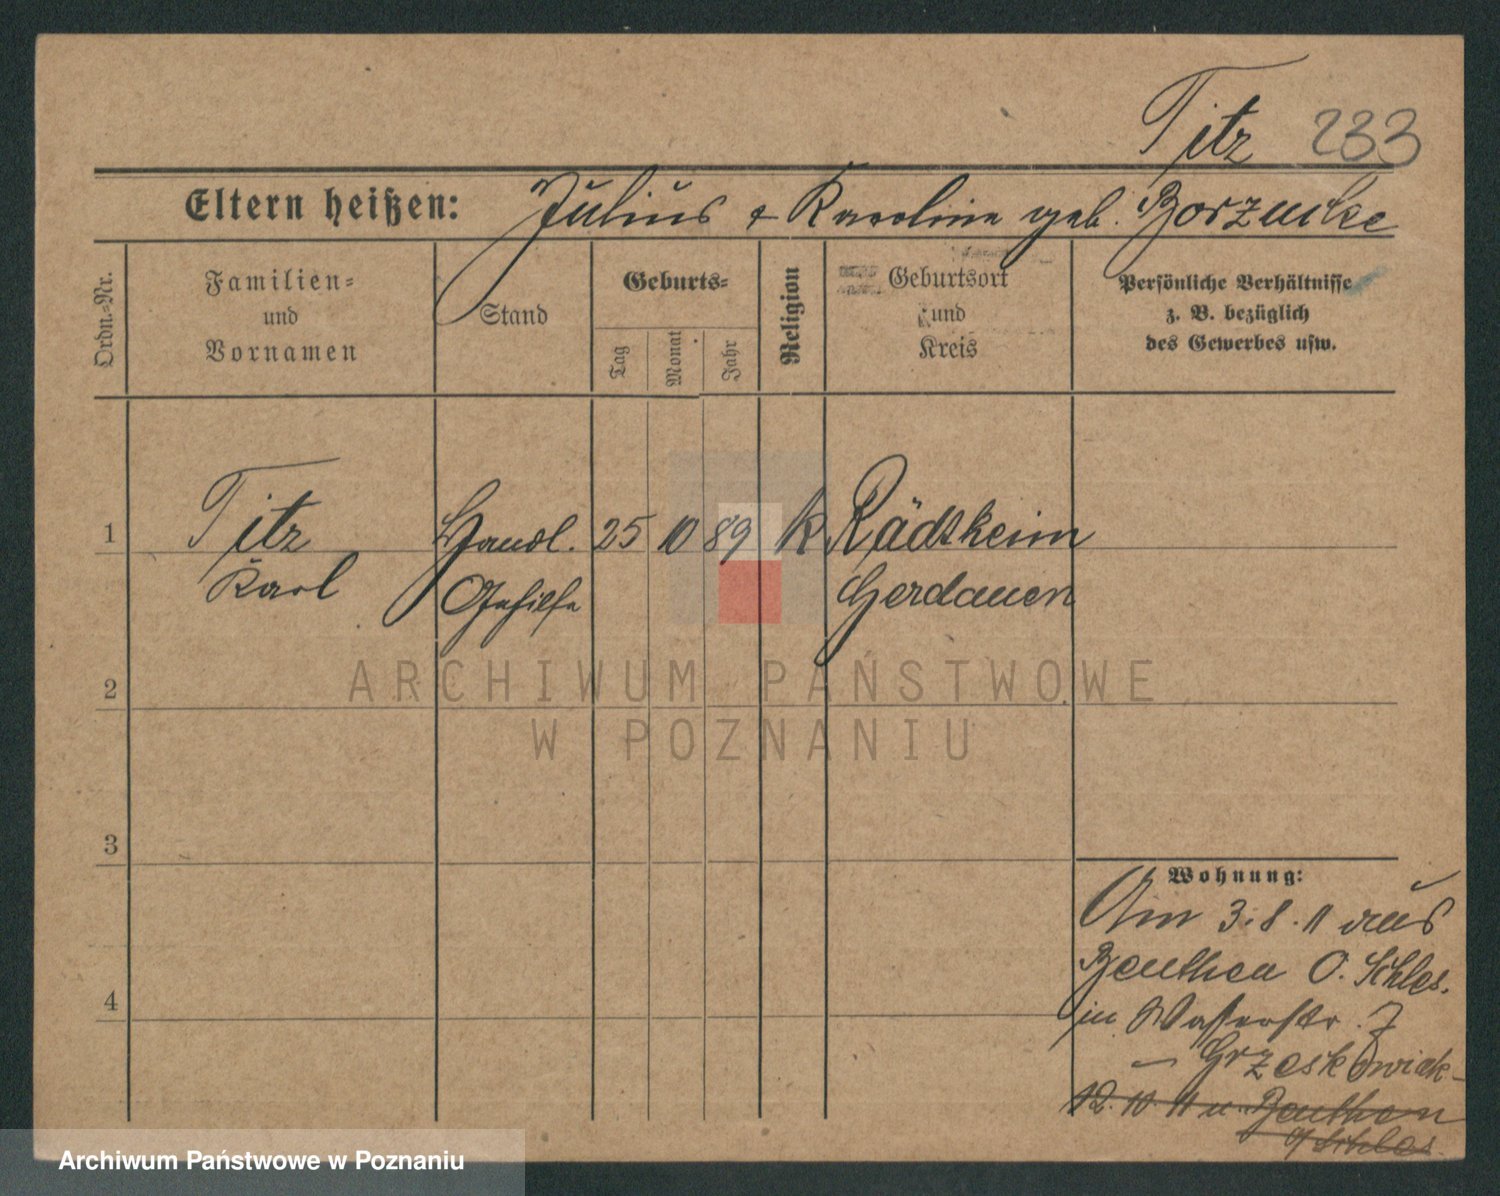 Titz 233
Eltern heißen: Julius & Karoline geb. Borzucke
Ordn.-Nr.
Familien-
und
Vornamen
Stand
Geburts-
Tag
Monat
Jahr
Religion
Geburtsort
und
Kreis
Persönliche Verhältnisse
z. B. bezüglich
des Gewerbes usw.
1 Titz Handl. 25 10 89 k Rädtkeim
Karl Gehilfe Gerdauen
2
3
4
Wohnung:
Am 3.8.11 aus
Beuthen O. Schles.
in Wasserstr. 7
– Grzeskowiak –
12.10.11 n. Beuthen
O/Schles.
ARCHIWUM PAŃSTWOWE
W POZNANIU
Archiwum Państwowe w Poznaniu